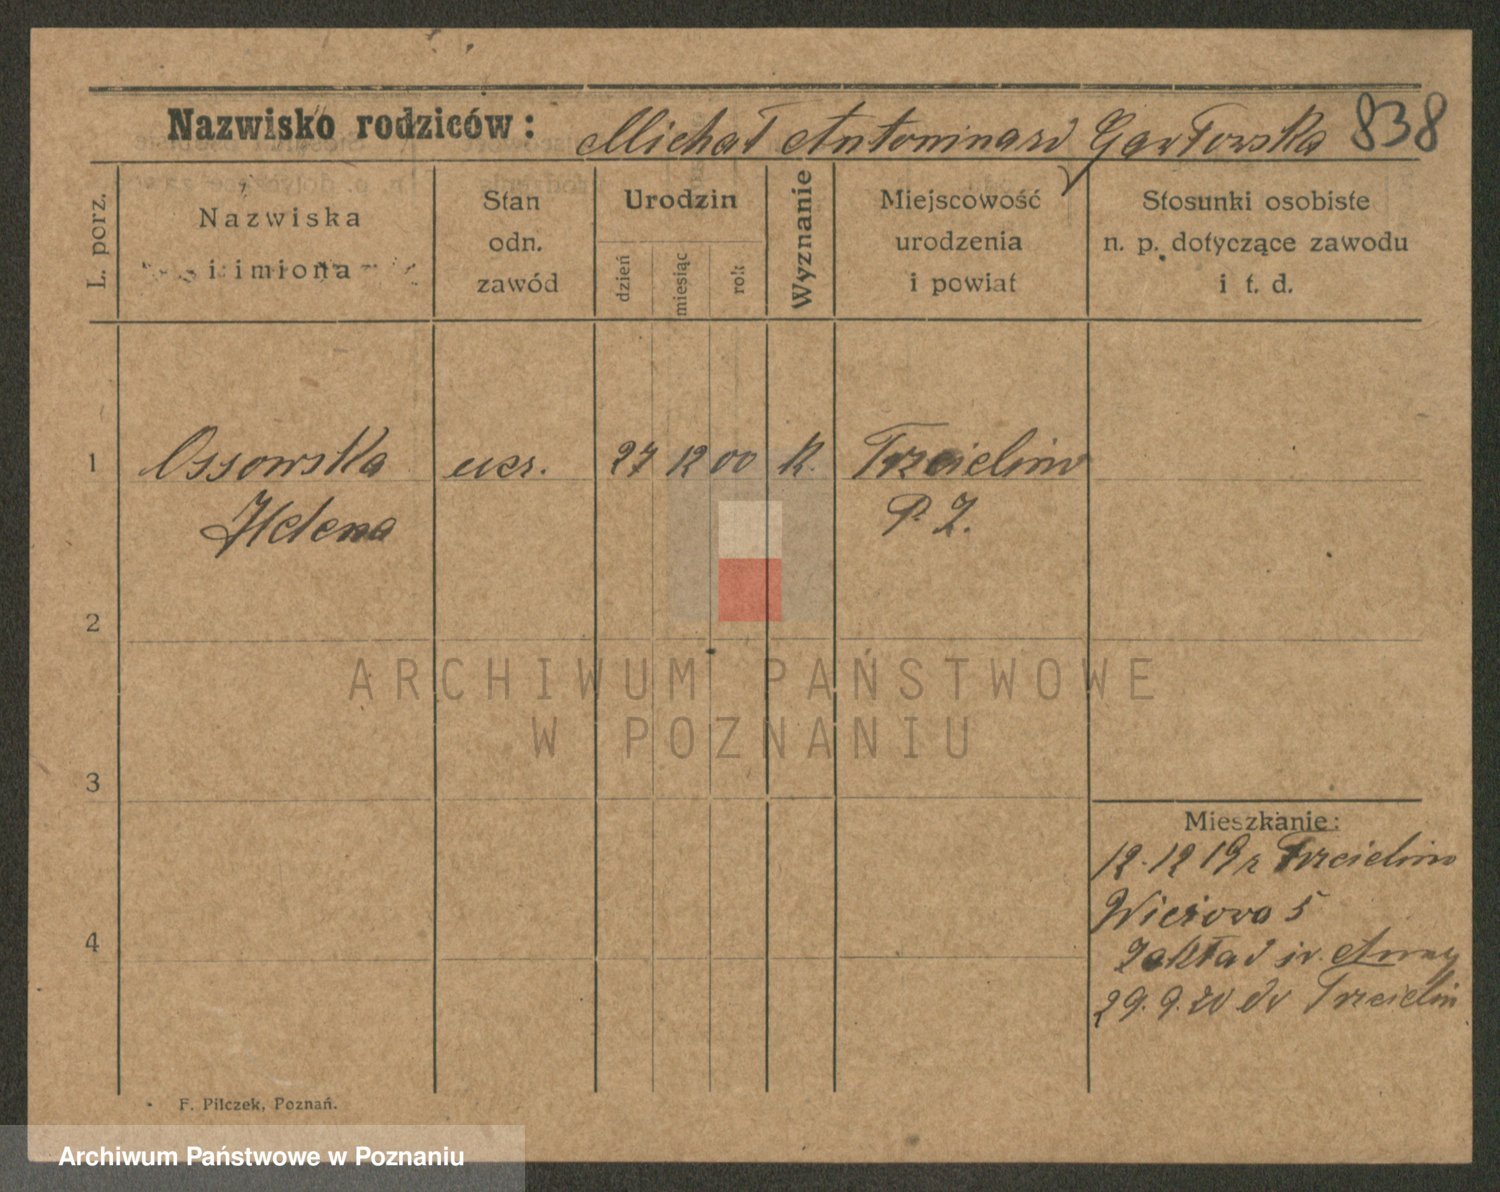 Nazwisko rodziców: Michał Antonina 838
L. porz.
Nazwiska
i imiona
Stan
odn.
zawód
Urodzin
dzień
miesiąc
rok
Wyznanie
Miejscowość
urodzenia
i powiat
Stosunki osobiste
n. p. dotyczące zawodu
i t. d.
1 Ossowska ucz. 27 12 00 k. Trzcielino
Helena P. Z.
2
ARCHIWUM PAŃSTWOWE
W POZNANIU
3
Mieszkanie:
12.12 19 z Trzcielino
Wieżowa 5
4
Zakład św. Anny
29.9.20 do Trzcielin
F. Pilczek, Poznań.
Archiwum Państwowe w Poznaniu